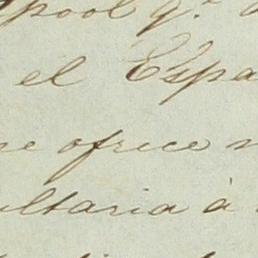 pool qº
el Espa
se ofrece
ultaria à